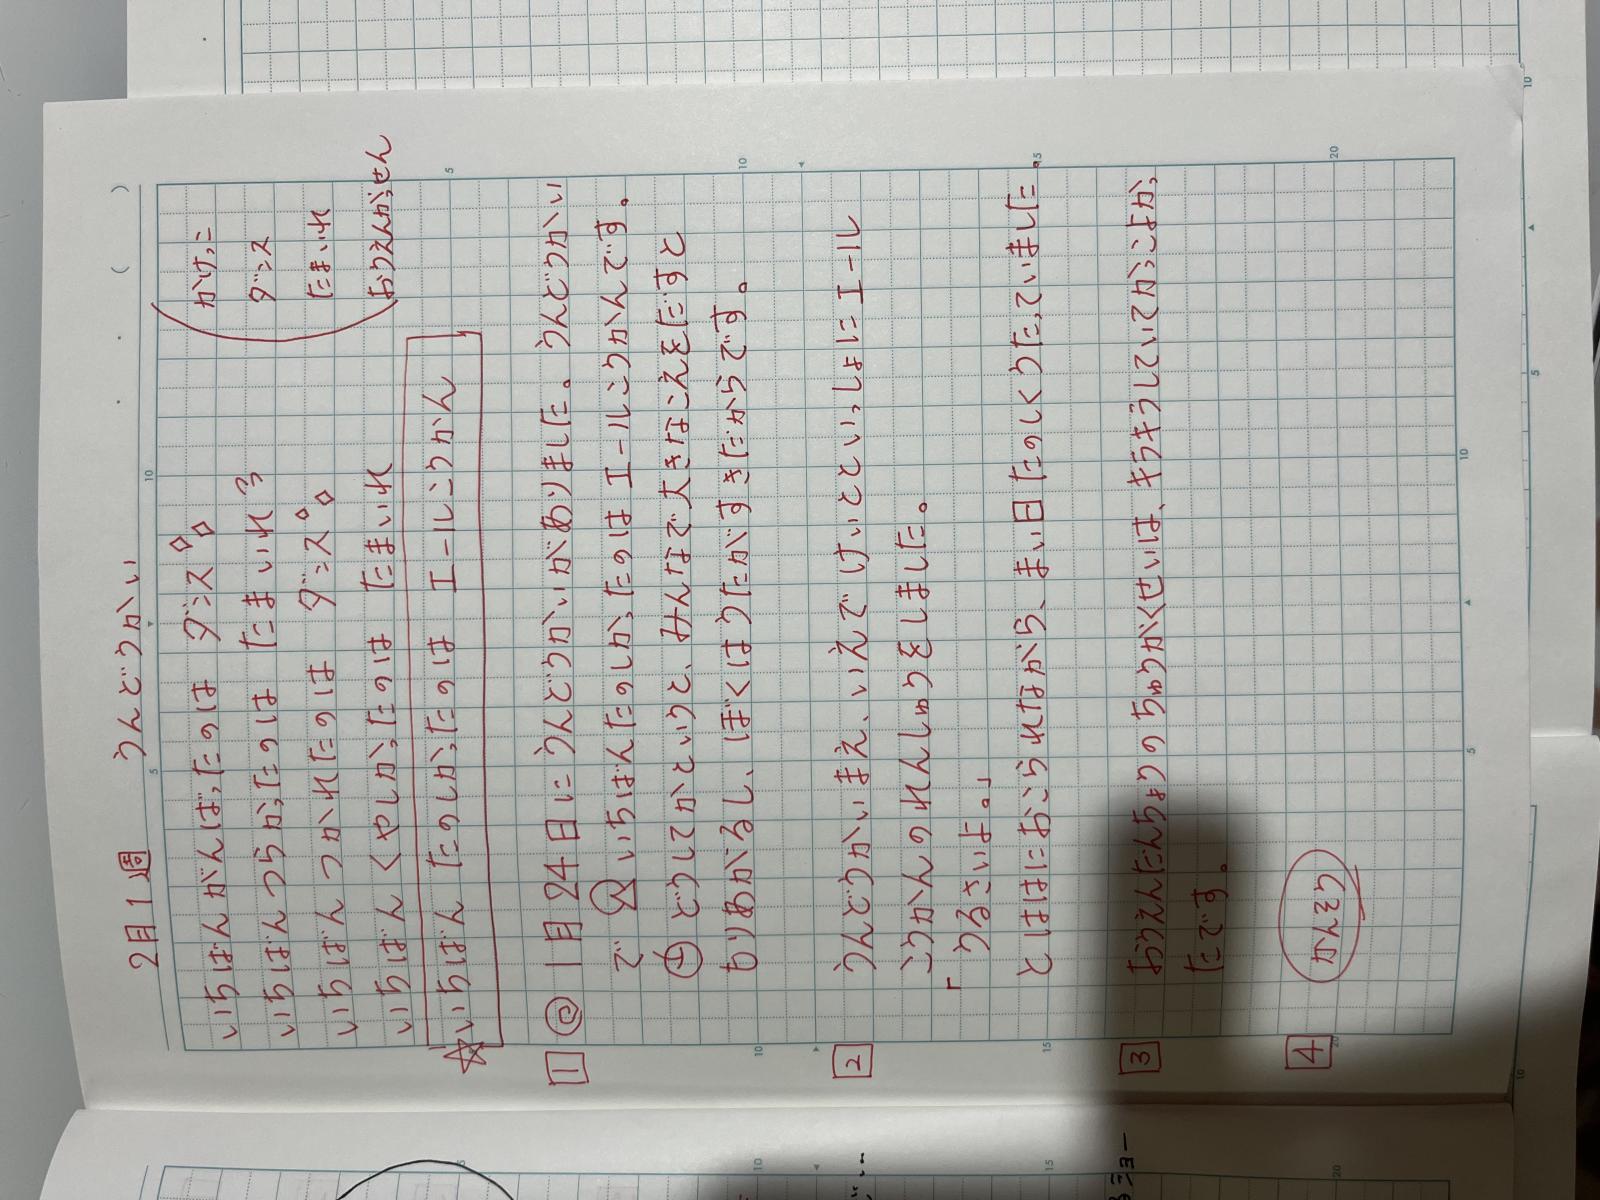 2月1週　うんどうかい
いちばんがんばったのは　ダンス
いちばんつらかったのは　たまいれ
いちばんつかれたのは　ダンス
いちばんくやしかったのは　たまいれ
☆いちばん　たのしかったのは　エールこうかん
かけっこ
ダンス
たまいれ
おうえんがっせん
1 ◎ 1月24日にうんどうかいがありました。うんどうかい
で　いちばんたのしかったのはエールこうかんです。
どうしてかというと、みんなで大きなこえをだすと
もりあがるし、ぼくはうたがすきだからです。
2 うんどうかいまえ、いえでけいとといっしょにエール
こうかんのれんしゅうをしました。
「うるさいよ。」
とははにおこられながら、まい日たのしくうたっていました。
3 おうえんだんちょうのちゅうがくせいは、キラキラしていてかっこよかっ
たです。
4 かんそう
5
10
15
20
5
10
10
15
20
5
10